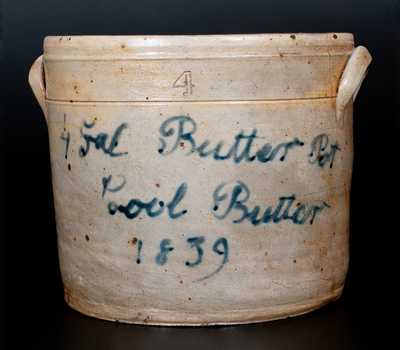 4
4 Gal Butter Pot
Cool Butter
1839